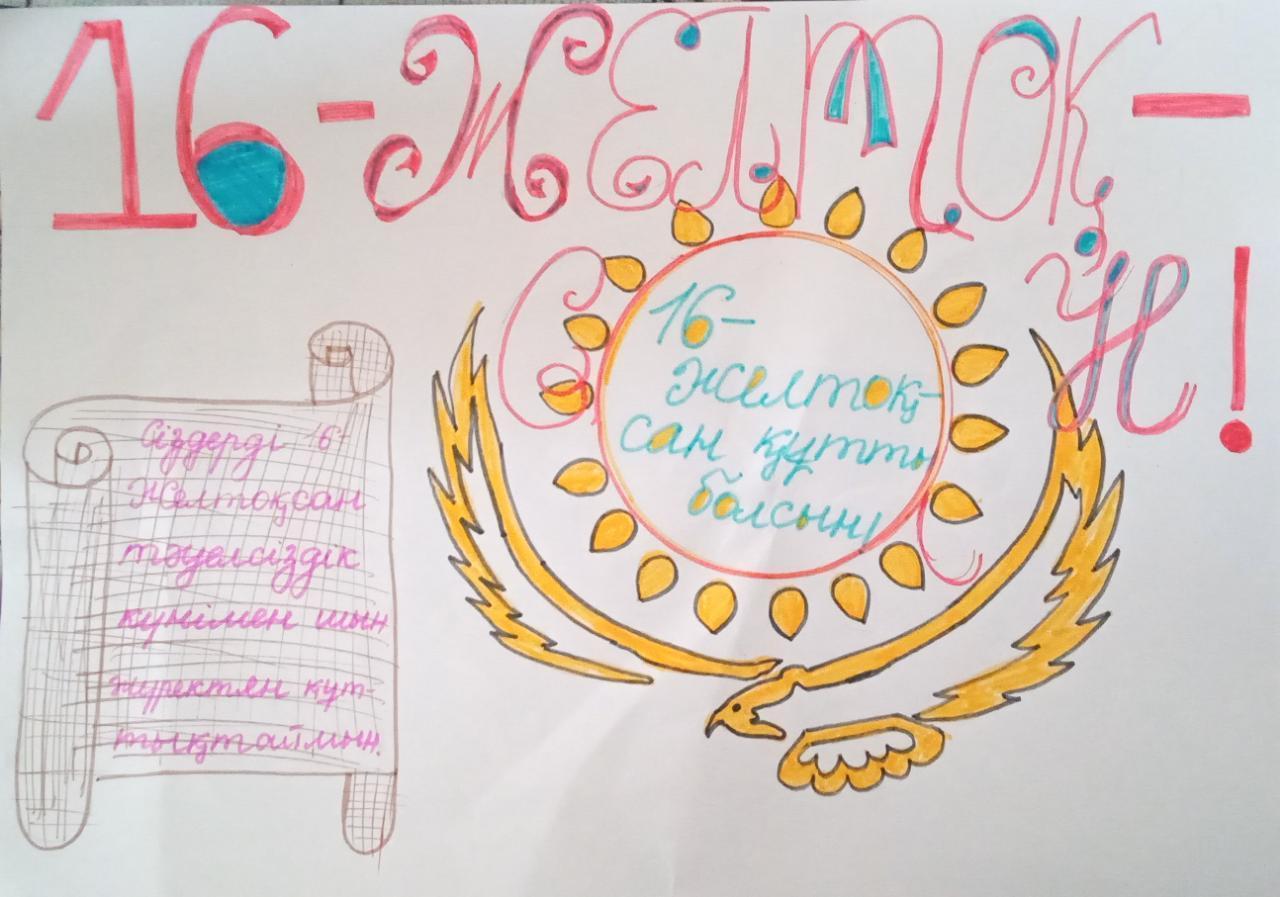 16-ЖЕЛТОҚ-
СН!
16-
Желтоқ-
сан құтты
болсын!
Сіздерді 16-
Желтоқсан
тәуелсіздік
күнімен шын
жүректян құт-
тықтаймын.